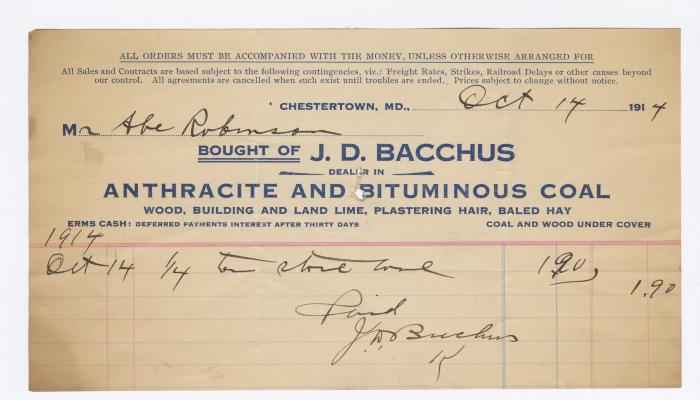 ALL ORDERS MUST BE ACCOMPANIED WITH THE MONEY, UNLESS OTHERWISE ARRANGED FOR
All Sales and Contracts are based subject to the following contingencies, viz.: Freight Rates, Strikes, Railroad Delays or other causes beyond
our control. All agreements are cancelled when such exist until troubles are ended. Prices subject to change without notice.
CHESTERTOWN, MD., Oct 14 1914
Mr Abe Robinson
BOUGHT OF J. D. BACCHUS
DEALER IN
ANTHRACITE AND BITUMINOUS COAL
WOOD, BUILDING AND LAND LIME, PLASTERING HAIR, BALED HAY
ERMS CASH: DEFERRED PAYMENTS INTEREST AFTER THIRTY DAYS COAL AND WOOD UNDER COVER
1914
Oct 14 1/4 ton stove coal 1.90
1.90
Paid
J.D. Bacchus